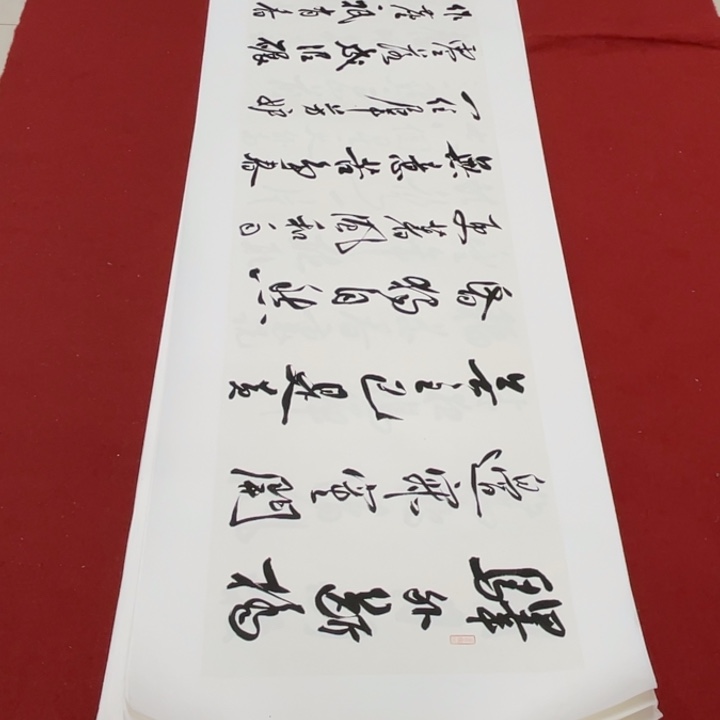 驛外斷橋
邊寂寞開
無主已是黃
昏獨自愁
更著風和雨
無意苦爭春
一任羣芳妒
零落成泥碾
作塵祇有香